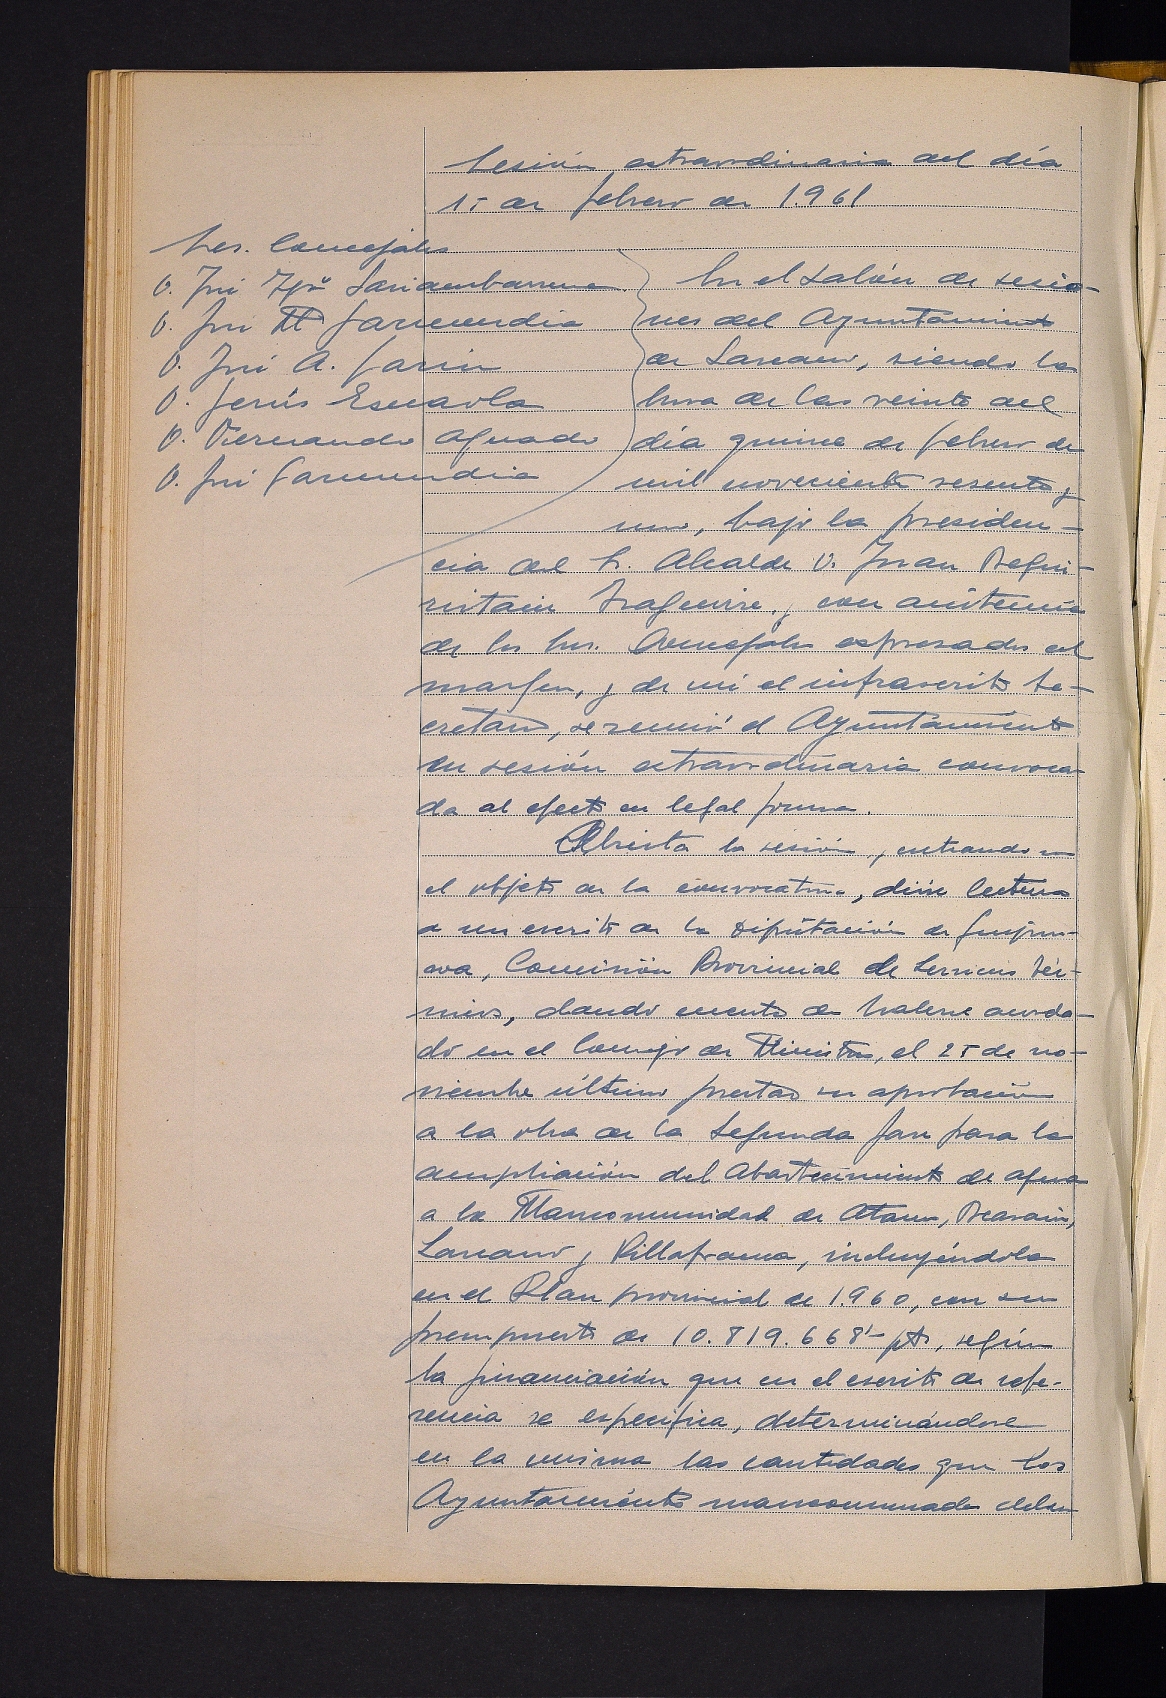 Sesión extraordinaria del día
15 de febrero de 1.961
Sres. Concejales
D. José Igº
D. José Mª Garmendia
D. José A. Garin
D. Jesús Esnaola
D. Fernando Aguado
D. José Garmendia
En el salón de sesio-
nes del Ayuntamiento
de Lazcano, siendo la
hora de las veinte del
día quince de febrero de
mil novecientos sesenta y
uno, bajo la presiden-
cia del Sr. Alcalde D. Juan Begui-
ristain Iraguirre, y con asistencia
de los Sres. Concejales expresados al
margen, y de mi el infrascrito Se-
cretario, se reunió el Ayuntamiento
en sesión extraordinaria convoca-
da al efecto en legal forma.
Abierta la sesión, y entrando en
el objeto de la convocatoria, dióse lectura
a un escrito de la Diputación de Guipuz-
coa, Comisión Provincial de Servicios Téc-
nicos, dando cuenta de haberse acorda-
do en el Consejo de Ministros, el 25 de no-
viembre último prestar su aprobación
a la obra de la Segunda fase para la
ampliación del Abastecimiento de agua
a la Mancomunidad de Ataun, Beasain,
Lazcano y Villafranca, incluyéndola
en el Plan provincial de 1.960, con un
presupuesto de 10.819.668'- pts, según
la financiación que en el escrito de refe-
rencia se especifica, determinándose
en la misma las cantidades que los
Ayuntamientos mancomunados deben